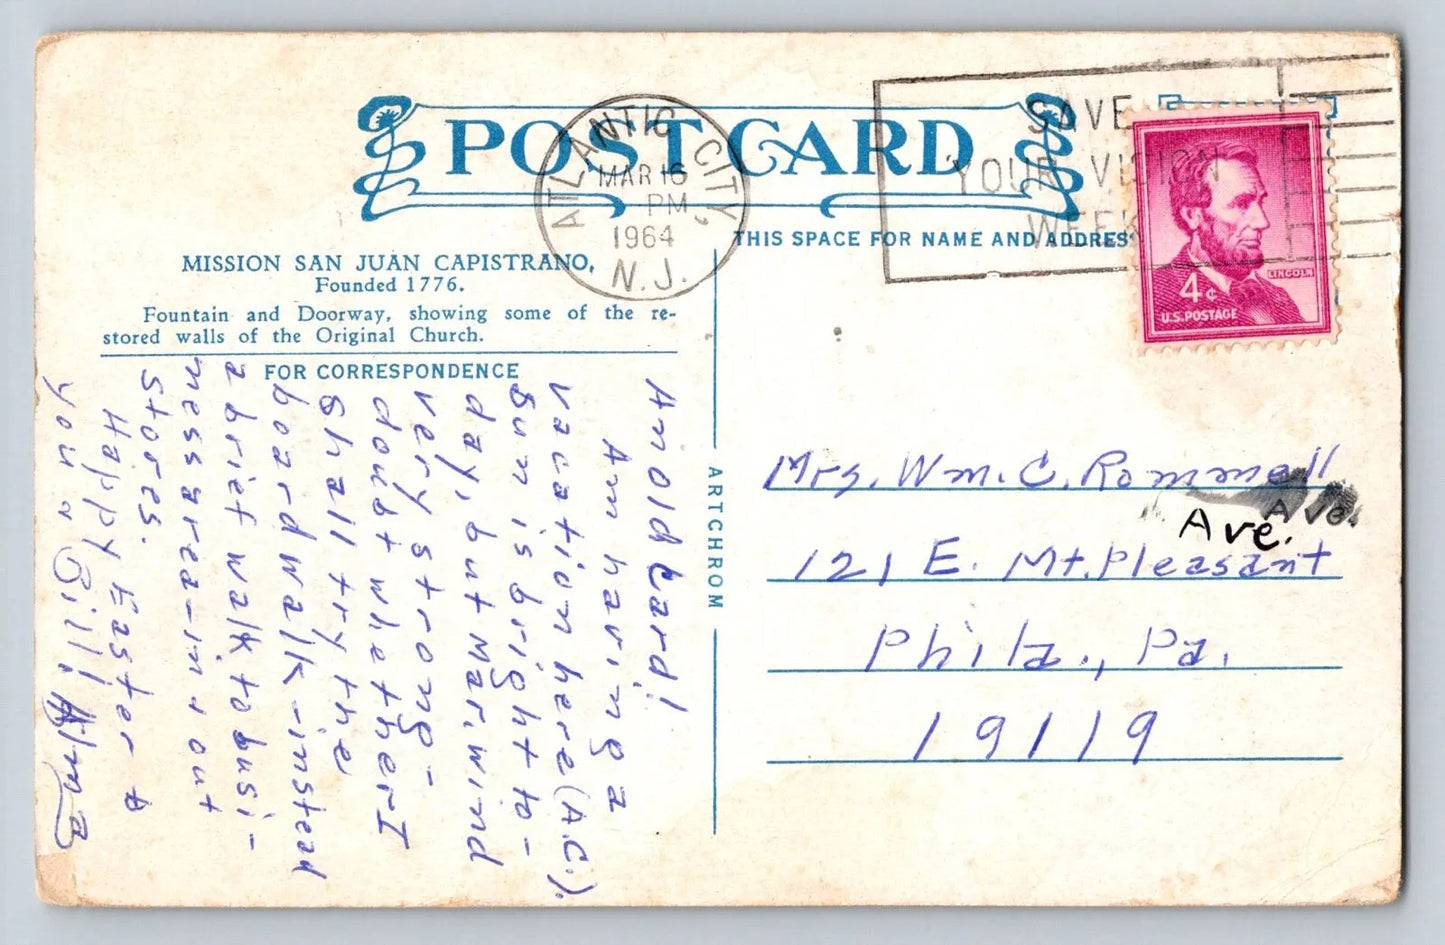 POST CARD
ATLANTIC CITY,
MAR 16
PM
1964
N.J.
SAVE
YOUR VISION
WEEK
LINCOLN
4¢
U.S. POSTAGE
MISSION SAN JUAN CAPISTRANO,
Founded 1776.
Fountain and Doorway, showing some of the re-
stored walls of the Original Church.
FOR CORRESPONDENCE
THIS SPACE FOR NAME AND ADDRESS
An old card!
Am having a
vacation here (A.C.).
Sun is bright to-
day, but Mar. wind
very strong-
doubt whether I
shall try the
boardwalk-instead
a brief walk to busi-
ness area-in & out
stores.
Happy Easter to
you & Bill! Alma
ARTCHROM
Mrs. Wm. C. Rommell
Ave.
Ave.
121 E. Mt. Pleasant
Phila., Pa.
19119